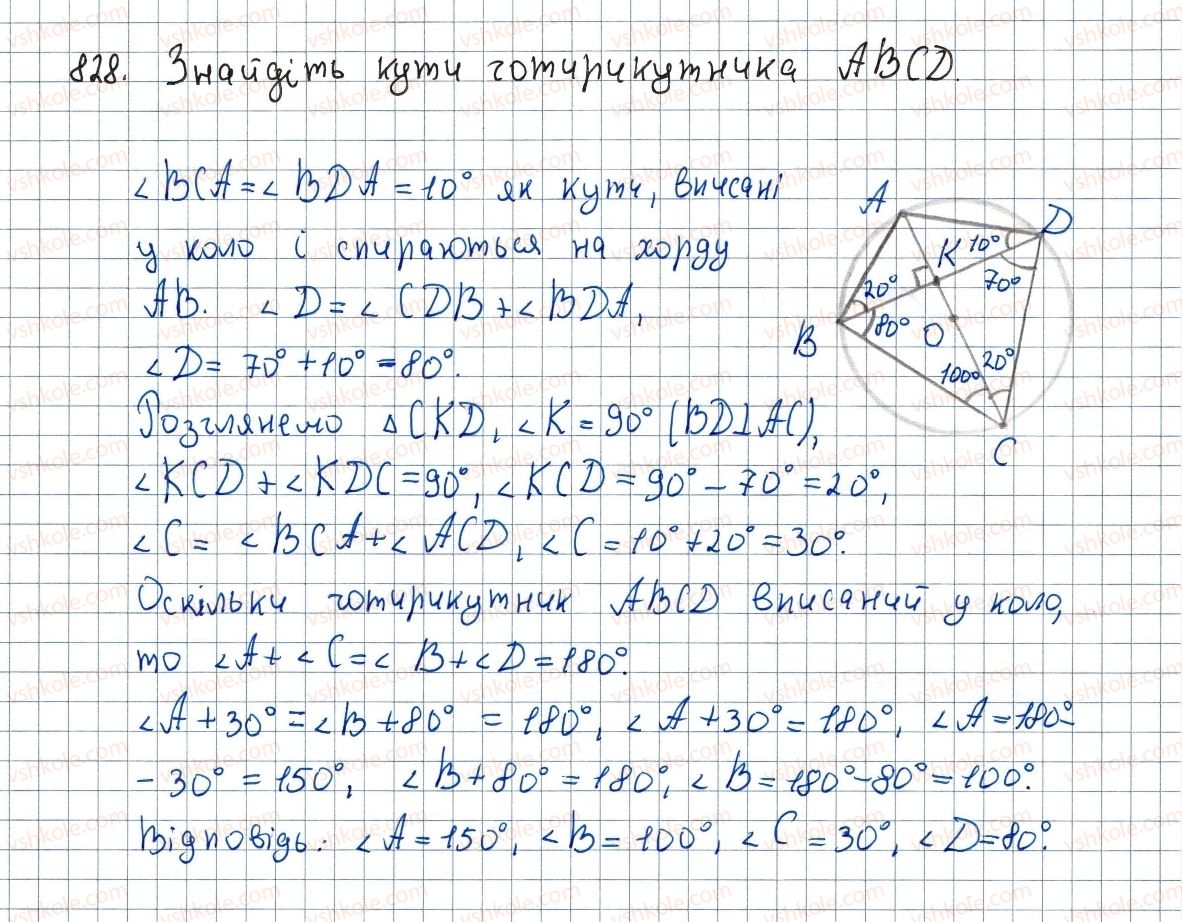 828. Знайдіть кути чотирикутника ABCD.
∠BCA = ∠BDA = 10° як кути, вписані
у коло і спираються на хорду
AB. ∠D = ∠CDB + ∠BDA,
∠D = 70° + 10° = 80°.
Розглянемо ΔCKD, ∠K = 90° (BD⊥AC),
∠KCD + ∠KDC = 90°, ∠KCD = 90° – 70° = 20°,
∠C = ∠BCA + ∠ACD, ∠C = 10° + 20° = 30°.
Оскільки чотирикутник ABCD вписаний у коло,
то ∠A + ∠C = ∠B + ∠D = 180°.
∠A + 30° = ∠B + 80° = 180°, ∠A + 30° = 180°, ∠A = 180° –
– 30° = 150°, ∠B + 80° = 180°, ∠B = 180° – 80° = 100°.
Відповідь: ∠A = 150°, ∠B = 100°, ∠C = 30°, ∠D = 80°.
A
D
K 10°
20°
70°
B
80°
O
20°
100°
C
vshkole.com